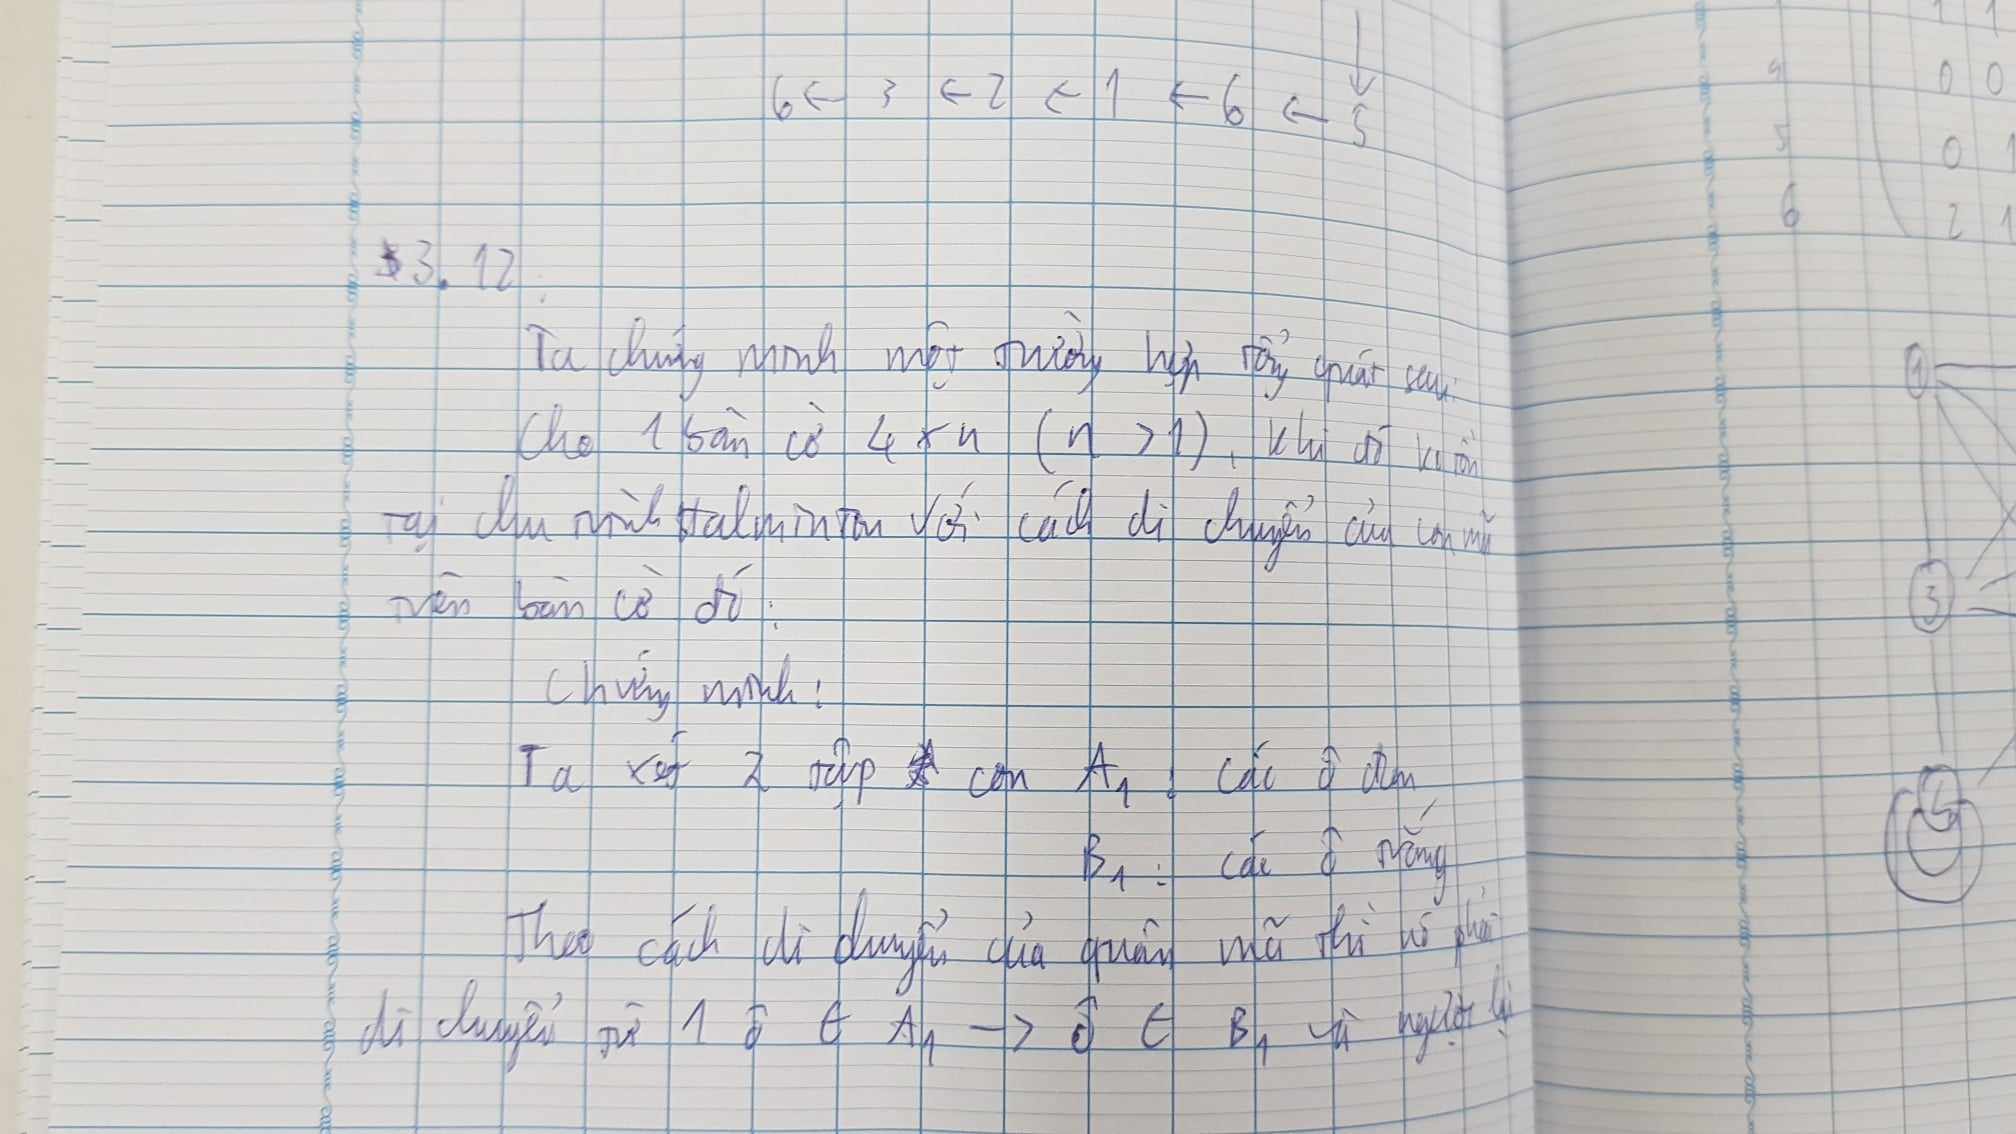 6 ← 3 ← 2 ← 1 ← 6 ← 5
3.12
Ta chứng minh một trường hợp tổng quát sau:
Cho 1 bàn cờ 4 x n (n > 1), khi đó ko tồn
tại chu trình Halminton với cách di chuyển của con mã
trên bàn cờ đó:
Chứng minh:
Ta xét 2 tập con A1: các ô đen
B1: các ô trắng
Theo cách di chuyển của quân mã thì nó phải
di chuyển từ 1 ô ∈ A1 → ô ∈ B1 và ngược lại
1 1
4 0 0
5 0 1
6 2 1
1
3